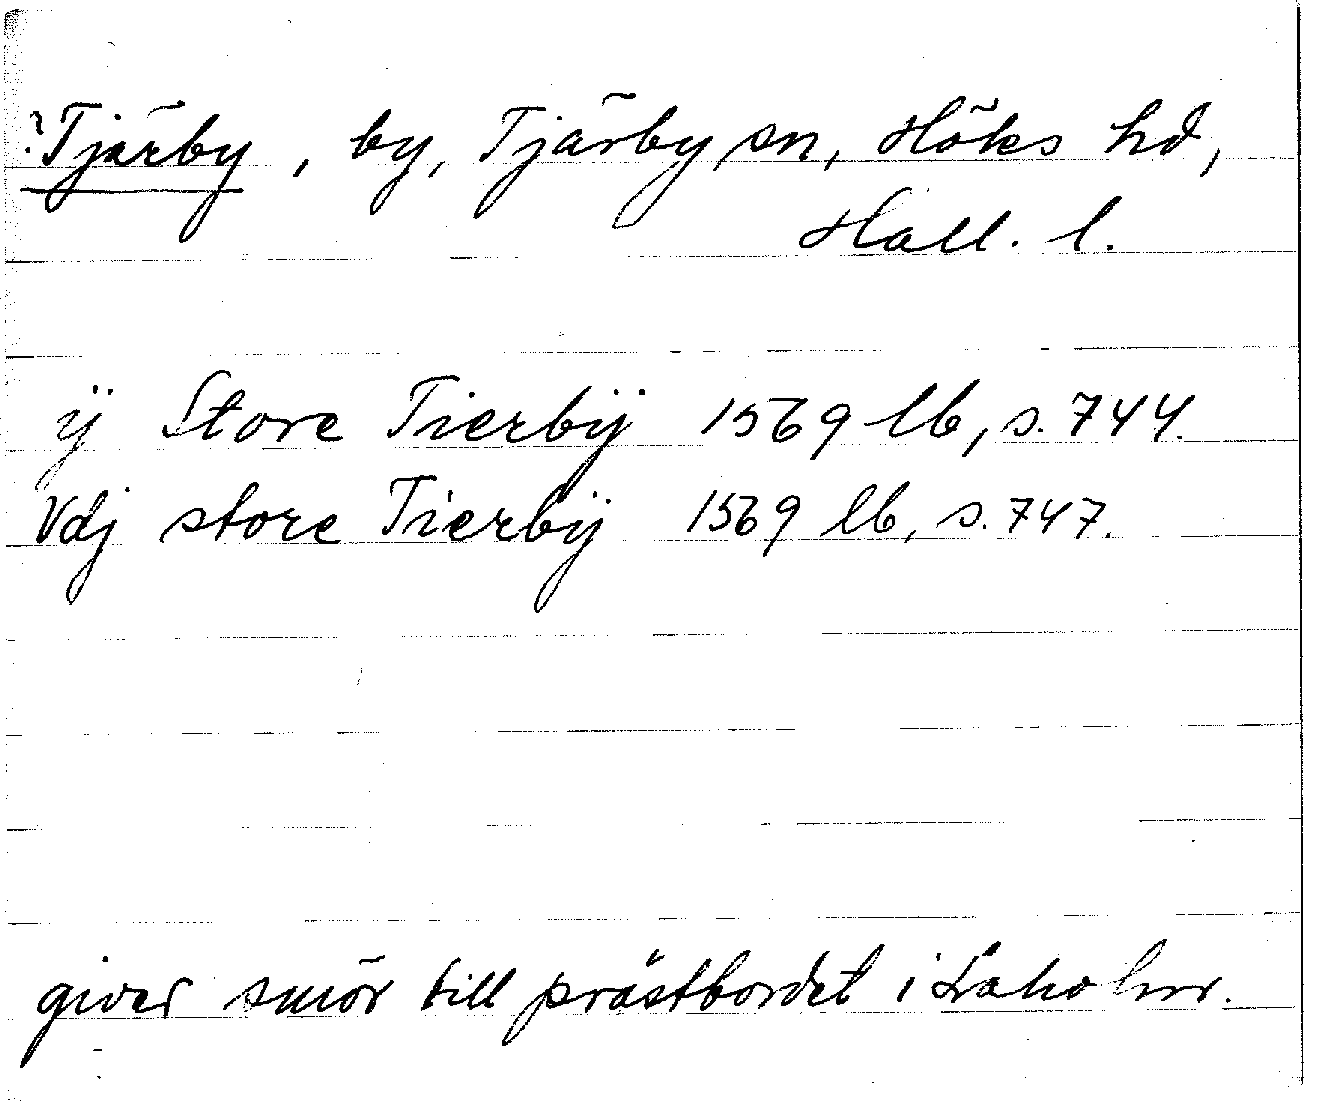 ?Tjärby, by, Tjärby sn, Höks hd,
Hall. l.
ÿ Store Tierbÿ 1569 lb, s. 744.
Vdj store Tierbÿ 1569 lb, s. 747.
giver smör till prästbordet i Laholm.